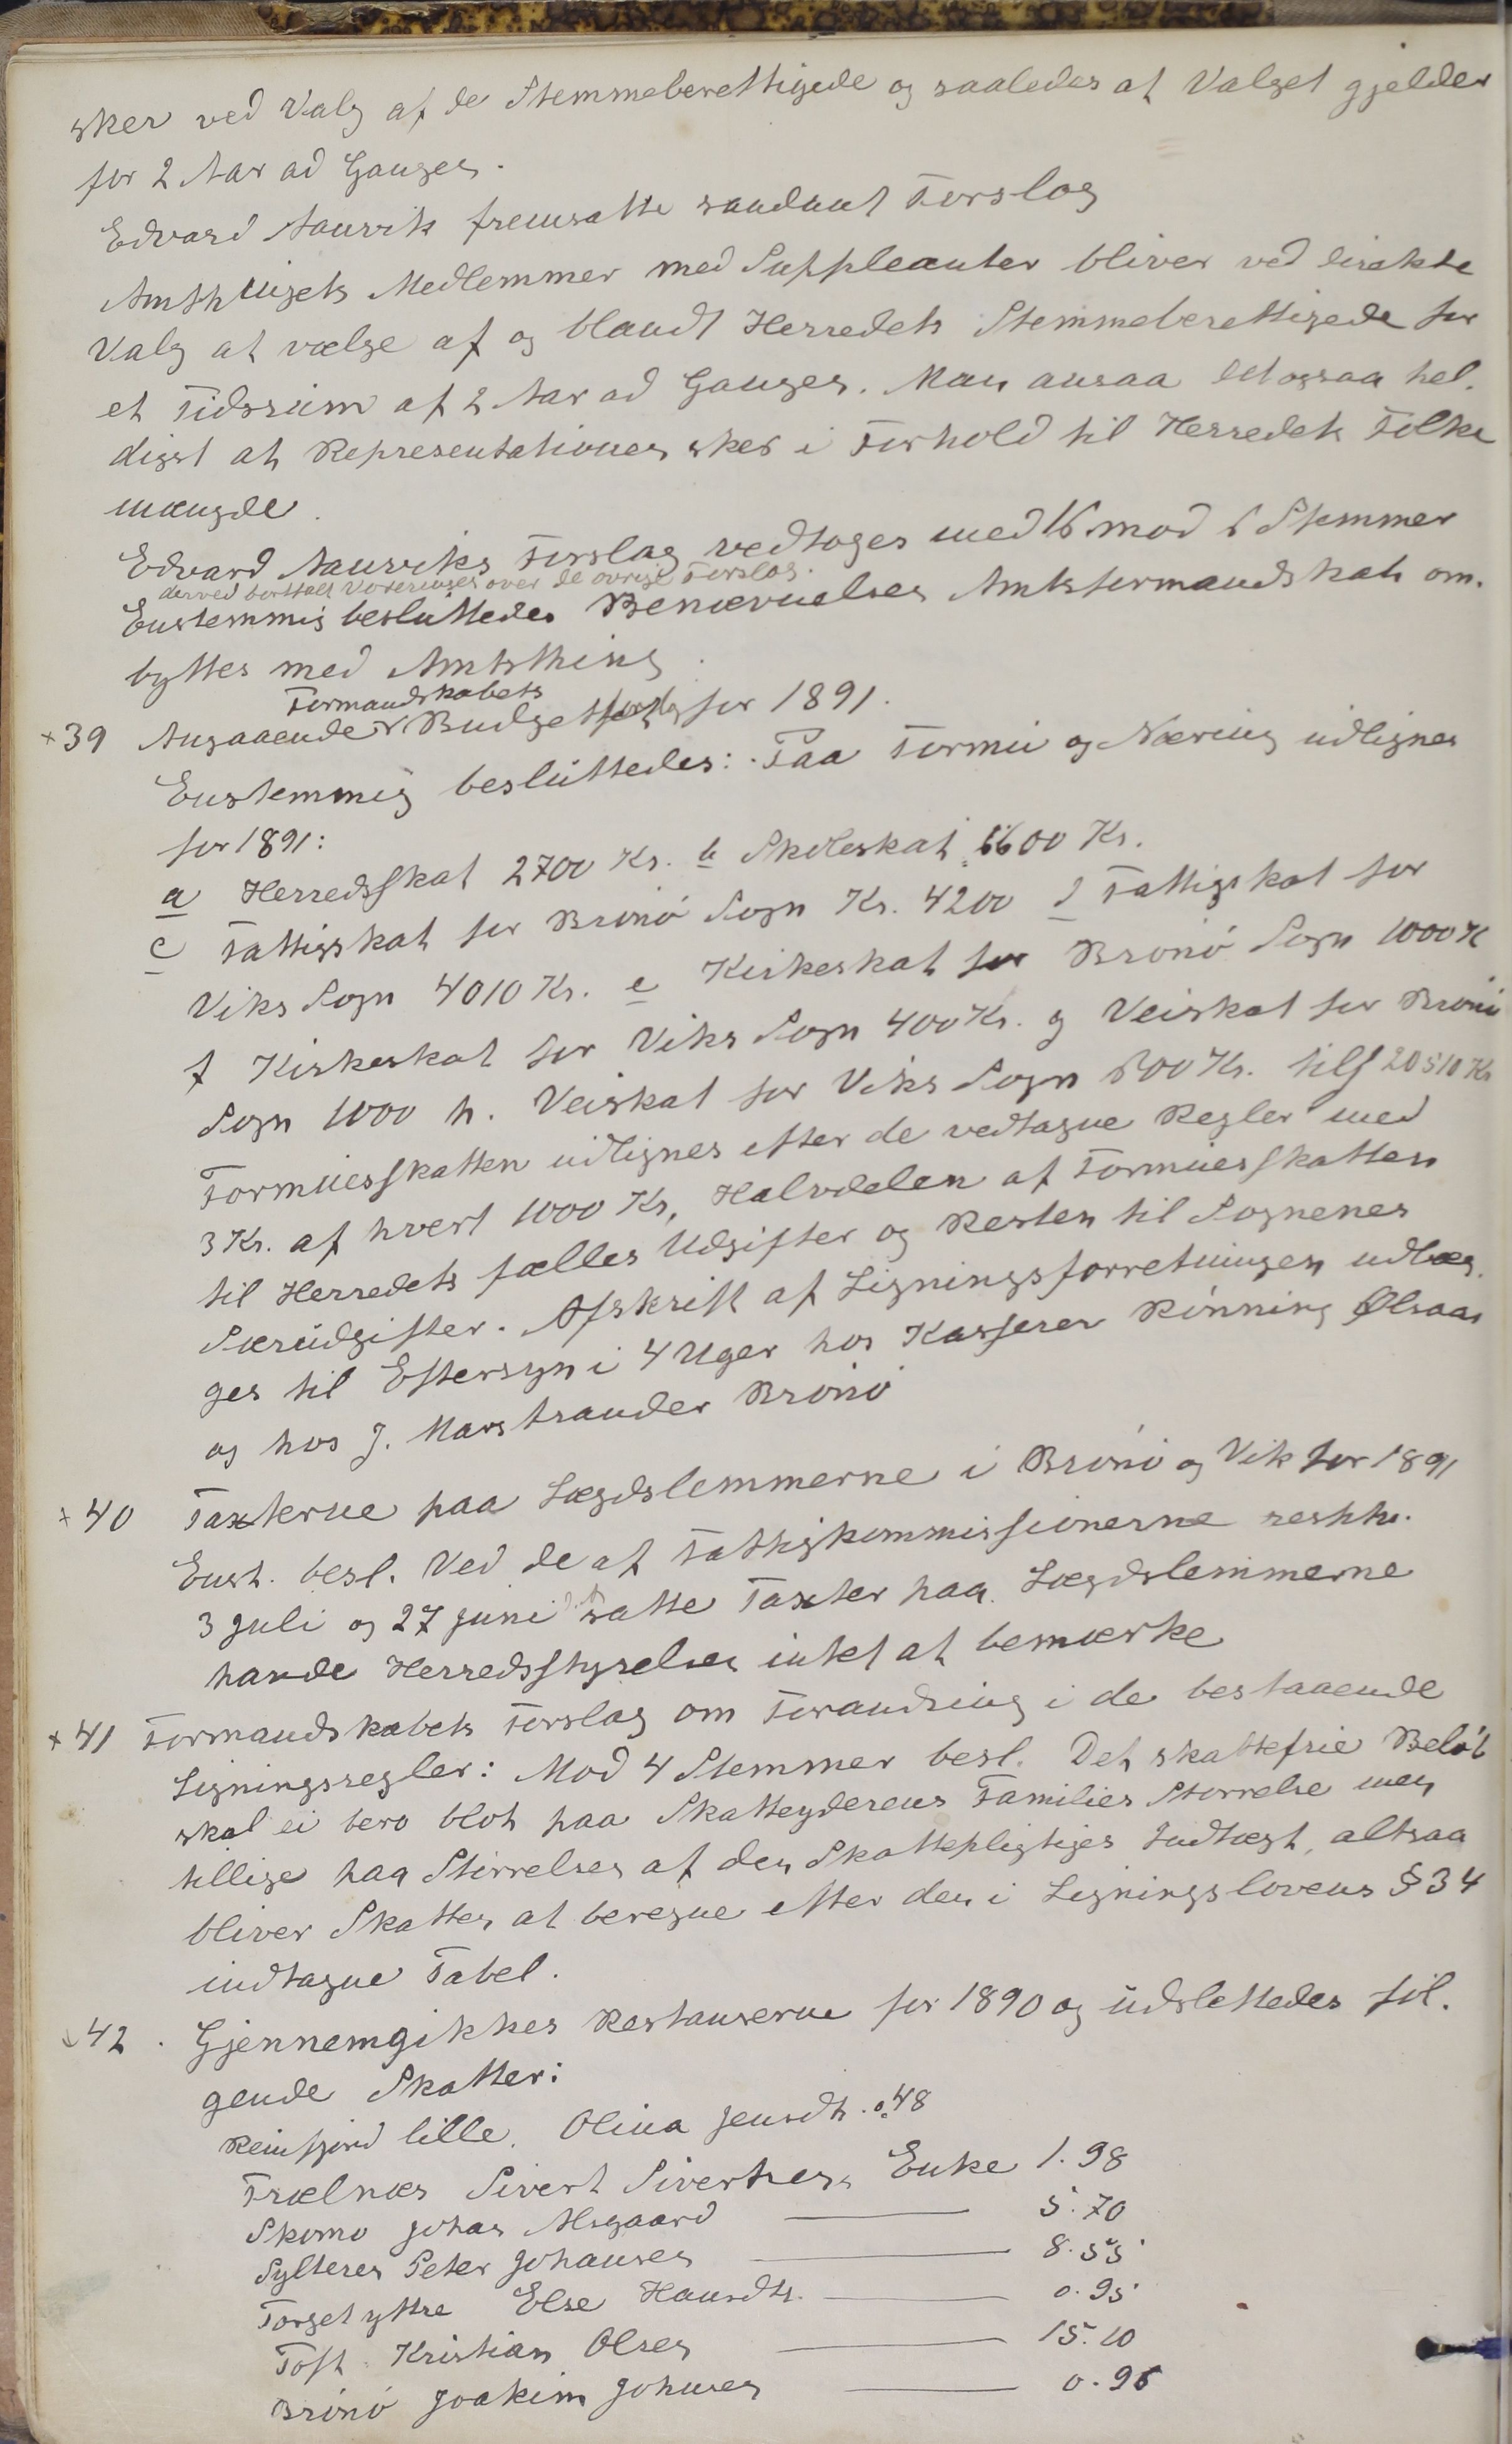 sker ved Valg af de Stemmeberettigede og saaledes at Valget gjelder
for 2 Aar ad Gangen.
Edvard Aaurvik fremsatte saadant Forslag
Amthingets Medlemmer med Suppleanter bliver ved direkte
Valg at vælge af og blandt Herredets Stemmeberettigede for
et Tidsrum af 2 Aar ad Gangen. Man ansaa det ogsaa hel-
digst at Representationen sker i Forhold til Herredets Folke
mængde.
Edvard Aaurviks Forslag vedtoges med 16 mod 6 Stemmer
derved bortfalt Voteringen over de øvrige Forslag.
Enstemmig besluttedes Benævnelsen Amtsformandskab om-
byttes med Amtsthing.
Formandskabets
+ 39 Angaaende Budgetforslag for 1891.
Enstemmig besluttedes: Paa Formue og Næring udlignes
for 1891:
a Herredsskat 2700 Kr. b Skoleskat 6600 Kr.
c Fattigskat for Brønø Sogn Kr. 4200 d Fattigskat for
Viks Sogn 4010 Kr. e Kirkeskat for Brønø Sogn 1000 K
f Kirkeskat for Viks Sogn 400 Kr. g Veiskat for Brønø
Sogn 1000 h. Veiskat for Viks Sogn 600 Kr. tils 20510 Kr
Formuesskatten udlignes efter de vedtagne Regler med
3 Kr. af hvert 1000 Kr, Halvdelen af Formuesskatten
til Herredets fælles Udgifter og Resten til Sognenes
Særudgifter. Afskrift af Ligningsforretningen udlæg-
ges til Eftersyn i 4 Uger hos Kasserer Rønning Ølsaas
og hos J. Marstrander Brønø
+ 40 Taxterne paa Lægdslemmerne i Brønø og Vik for 1891
Enst. besl. Ved de af Fattigkommissionerne resptr.
3 Juli og 27 Juni satte Taxter paa Lægdslemmerne
havde Herredsstyrelsen intet at bemærke
+ 41 Formandskabets Forslag om Forandring i de bestaaende
Ligningsregler: Mod 4 Stemmer besl. Det skattefrie Beløb
skal ei bero blot paa Skatteyderens Families Størrelse men
tillige paa Størrelsen af den Skattepligtiges Indtægt, altsaa
bliver Skatten at beregne efter den i Ligningslovens § 34
indtagne Tabel.
+ 42. Gjennemgikkes Restanserne for 1890 og udslettedes føl-
gende Skatter:
Reinfjord lille. Olina Jensdtr. 0.48
Trælnæs Sivert Sivertsens Enke 1.98
Skomo Johan Alsgaard 5.70
Sylteren Peter Johansen 8.55
Torget yttre Else Hansdtr. 0.95
Toft Kristian Olsen 15.10
Brønø Joakim Johnsen 0.95